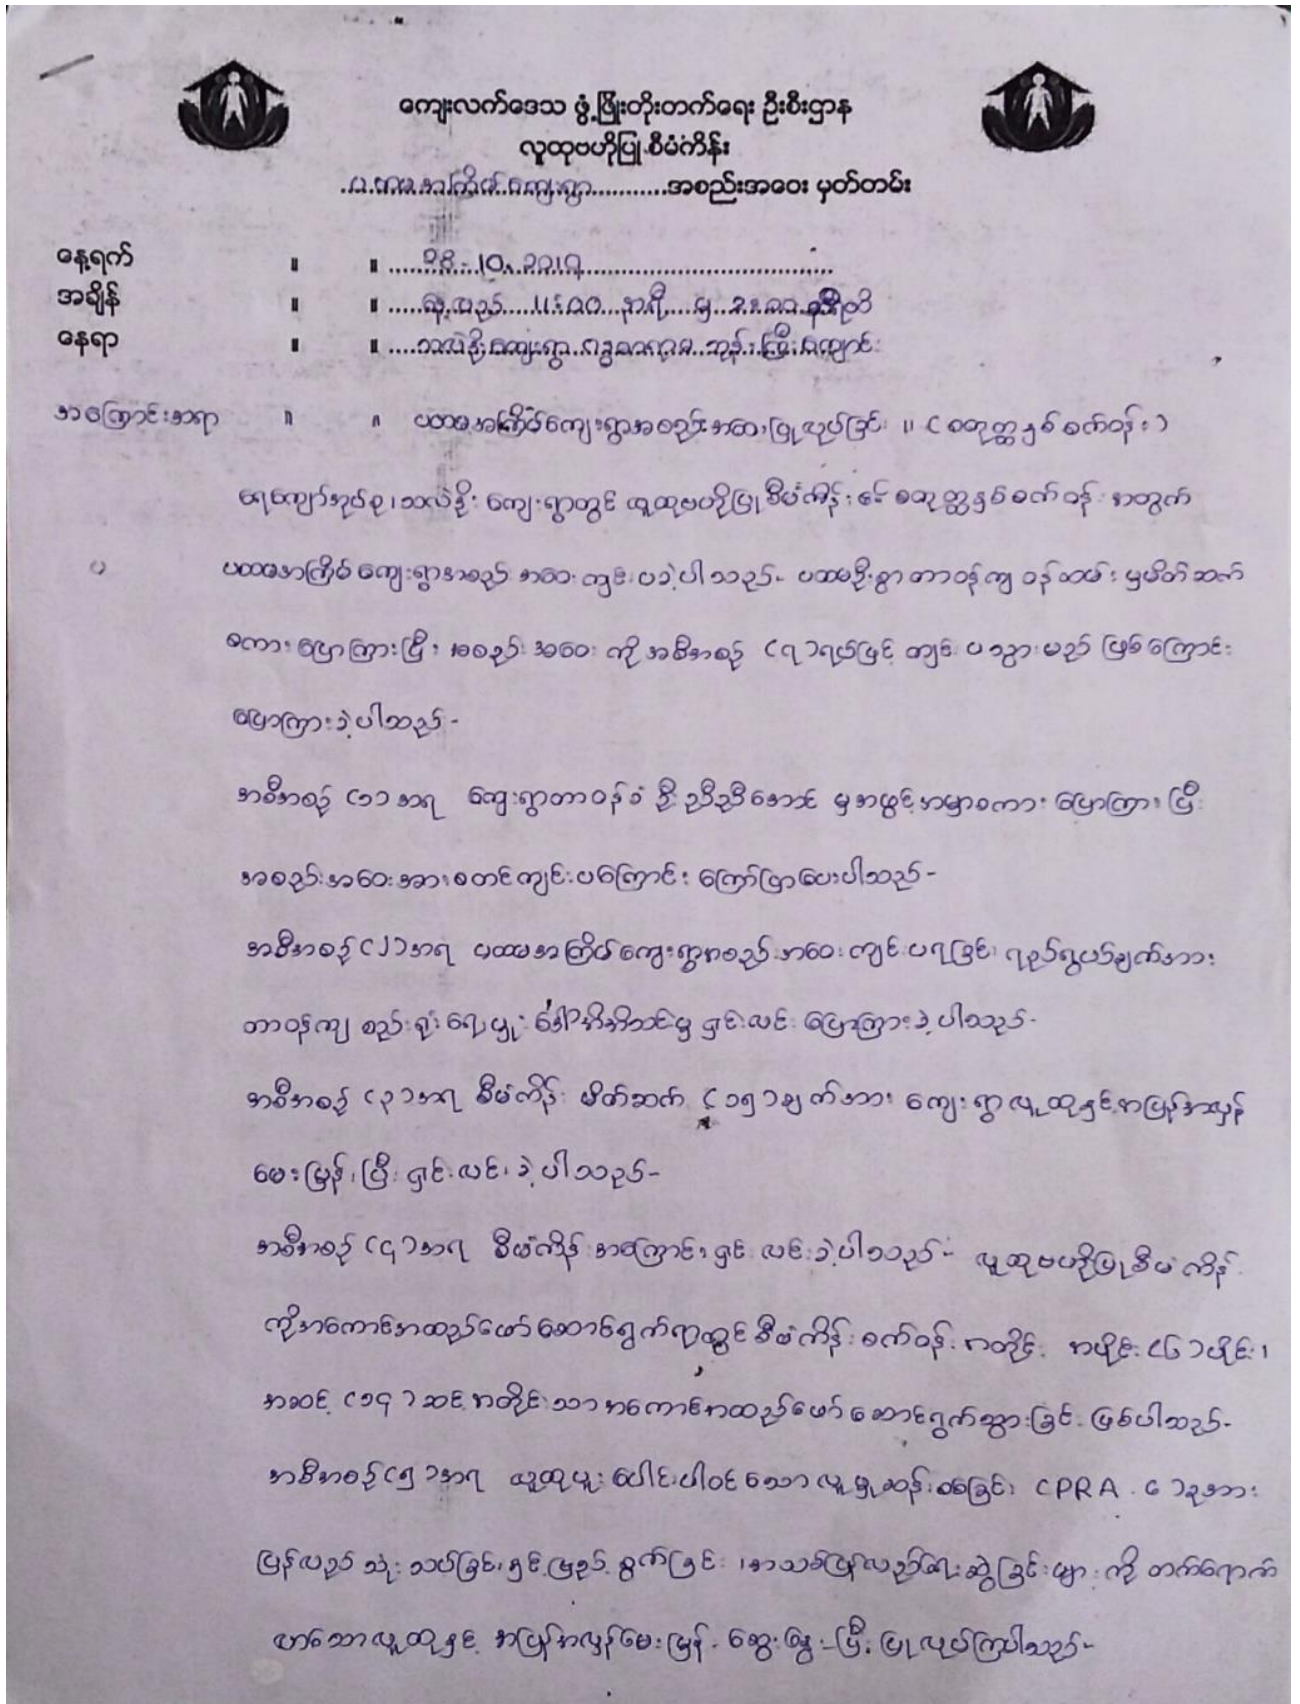 ကျေးလက်ဒေသ ဖွံ့ဖြိုးတိုးတက်ရေး ဦးစီးဌာန
လူထုဗဟိုပြု စီမံကိန်း
ပထမအကြိမ် ကျေးရွာ အစည်းအဝေး မှတ်တမ်း
နေ့ရက် ။ ။ 28-10-2019
အချိန် ။ ။ နေ့လည် 11:00 နာရီ မှ 2:00 နာရီထိ
နေရာ ။ ။ ကျေးရွာ ဘုန်းကြီးကျောင်း
အကြောင်းအရာ ။ ။ ပထမအကြိမ်ကျေးရွာအစည်းအဝေးပြုလုပ်ခြင်း ။ (စတုတ္ထနှစ်စက်ဝန်း)
ရေကျော်အုပ်စု၊ ကျေးရွာတွင် လူထုဗဟိုပြုစီမံကိန်း စတုတ္ထနှစ်စက်ဝန်း အတွက်
ပထမအကြိမ် ကျေးရွာအစည်းအဝေး ကျင်းပခဲ့ပါသည်- ပထမဦးစွာ တာဝန်ကျ ဝန်ထမ်းမှမိတ်ဆက်
စကားပြောကြားပြီး အစည်းအဝေးကို အစီအစဉ် (၇)ရပ်ဖြင့် ကျင်းပသွားမည် ဖြစ်ကြောင်း
ပြောကြားခဲ့ပါသည်-
အစီအစဉ် (၁) အရ ကျေးရွာတာဝန်ခံ ဦးညီညီအောင် မှအဖွင့်အမှာစကား ပြောကြားပြီး
အစည်းအဝေးအားစတင်ကျင်းပကြောင်း ကြော်ငြာပေးပါသည်-
အစီအစဉ် (၂) အရ ပထမအကြိမ်ကျေးရွာအစည်းအဝေးကျင်းပရခြင်း ရည်ရွယ်ချက်အား
တာဝန်ကျ စည်းရုံးရေးမှူး ဒေါ်အိအိသင်းမှ ရှင်းလင်းပြောကြားခဲ့ပါသည်-
အစီအစဉ် (၃) အရ စီမံကိန်း မိတ်ဆက် (၁၅)ချက်အား ကျေးရွာလူထုနှင့်အပြန်အလှန်
မေးမြန်းပြီး ရှင်းလင်းခဲ့ပါသည်-
အစီအစဉ် (၄) အရ စီမံကိန်းအကြောင်း ရှင်းလင်းခဲ့ပါသည်- လူထုဗဟိုပြုစီမံကိန်း
ကိုအကောင်အထည်ဖော် ဆောင်ရွက်ရာတွင် စီမံကိန်းစက်ဝန်းအတိုင်း အပိုင်း (၆)ပိုင်း၊
အဆင့် (၁၄) ဆင့်အတိုင်းသာ အကောင်အထည်ဖော် ဆောင်ရွက်သွားခြင်း ဖြစ်ပါသည်-
အစီအစဉ် (၅) အရ လူထုပူးပေါင်းပါဝင်သော လူမှုဆန်းစစ်ခြင်း (PRA ) ခုအား
ပြန်လည် သုံးသပ်ခြင်းနှင့်ဖြည့်စွက်ခြင်း ၊အသစ်ပြန်လည်ရေးဆွဲခြင်းများကို တက်ရောက်
လာသောလူထုနှင့် အပြန်အလှန်မေးမြန်း ဆွေးနွေးပြီး ပြုလုပ်ကြပါသည်-